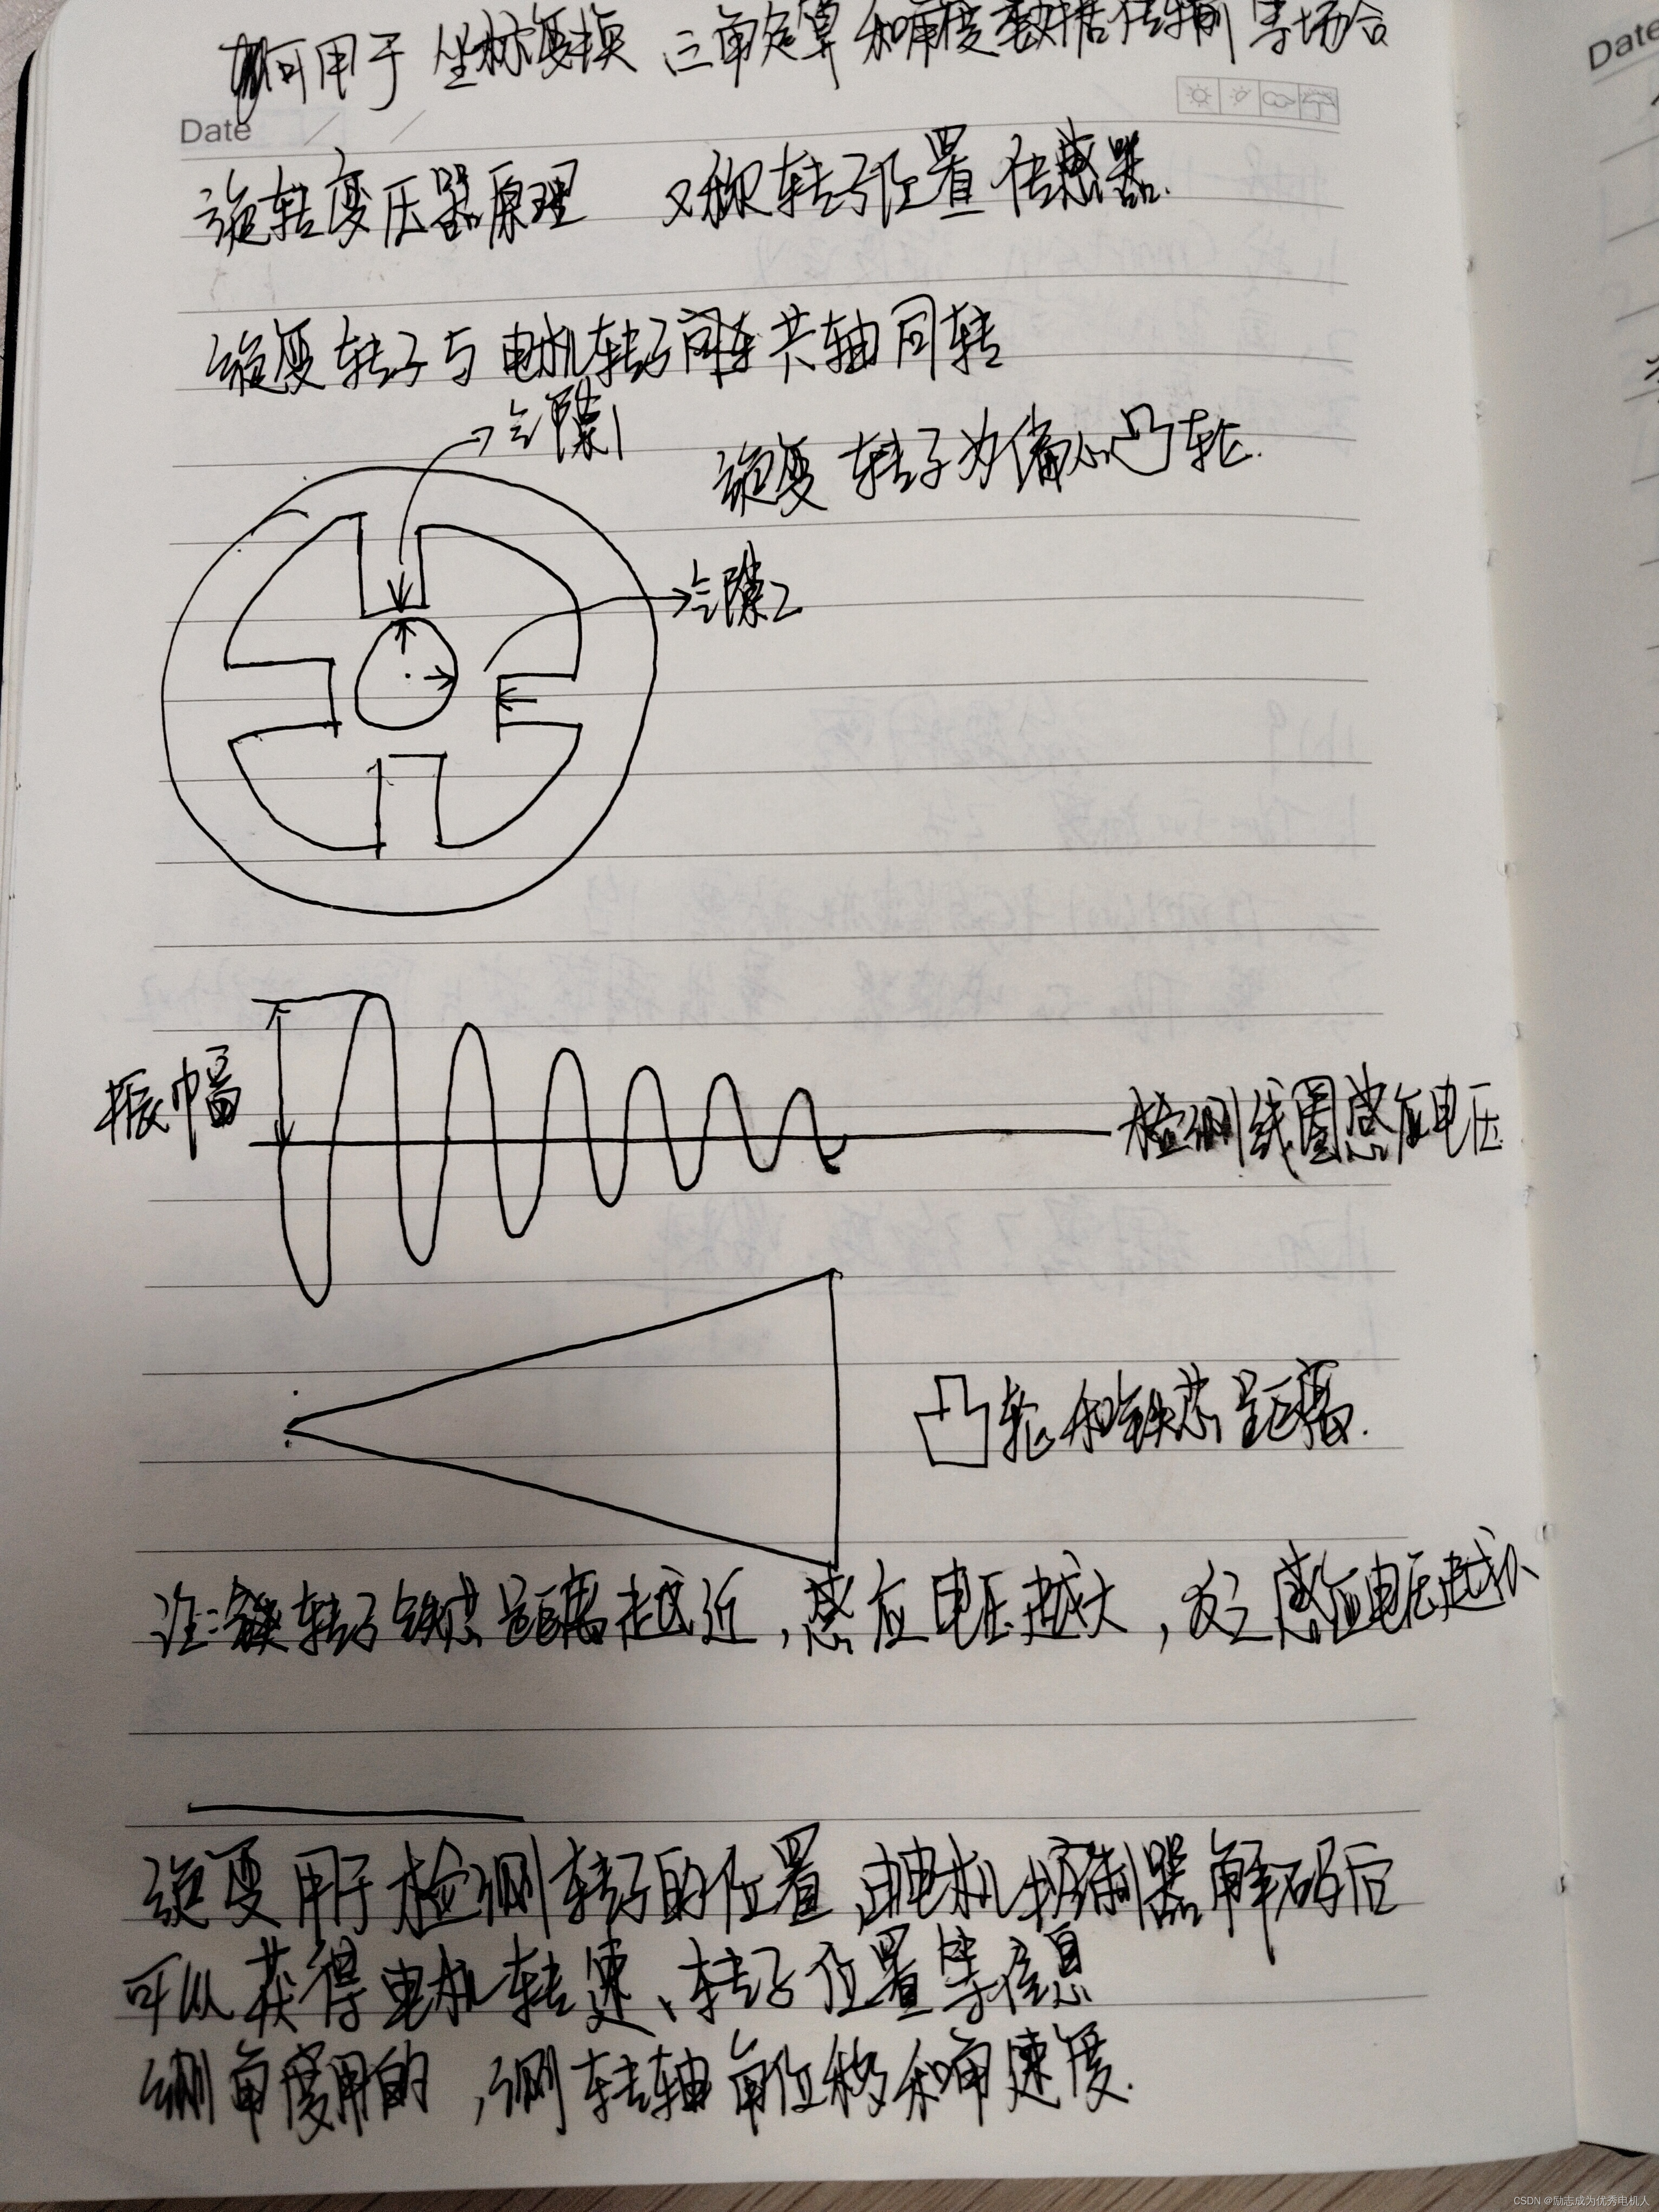 可用于坐标变换 三角运算 和角度数据传输等场合
Date
Date
旋转变压器原理 又称转子位置传感器.
旋变转子与电机转子同轴共轴同转
气隙1
旋变转子为偏心凸轮.
气隙2
振幅
检测线圈感应电压
凸轮和铁芯距离.
注: 转子铁芯距离越近,感应电压越大,反之感应电压越小
旋变用于检测转子的位置,由电机控制器解码后
可以获得电机转速、转子位置等信息
测角度用的,测转轴角位移和角速度.
CSDN @励志成为优秀电机人